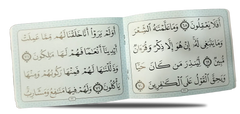 أَفَلَا يَعْقِلُونَ ۝ وَمَا عَلَّمْنَٰهُ ٱلشِّعْرَ
وَمَا يَنۢبَغِى لَهُۥٓ إِنْ هُوَ إِلَّا ذِكْرٌ وَقُرْءَانٌ
مُّبِينٌ ۝ لِّيُنذِرَ مَن كَانَ حَيًّا
وَيَحِقَّ ٱلْقَوْلُ عَلَى ٱلْكَٰفِرِينَ ۝
أَوَلَمْ يَرَوْا۟ أَنَّا خَلَقْنَا لَهُم مِّمَّا عَمِلَتْ
أَيْدِينَآ أَنْعَٰمًا فَهُمْ لَهَا مَٰلِكُونَ ۝
وَذَلَّلْنَٰهَا لَهُمْ فَمِنْهَا رَكُوبُهُمْ وَمِنْهَا
يَأْكُلُونَ ۝ وَلَهُمْ فِيهَا مَنَٰفِعُ وَمَشَارِبُ